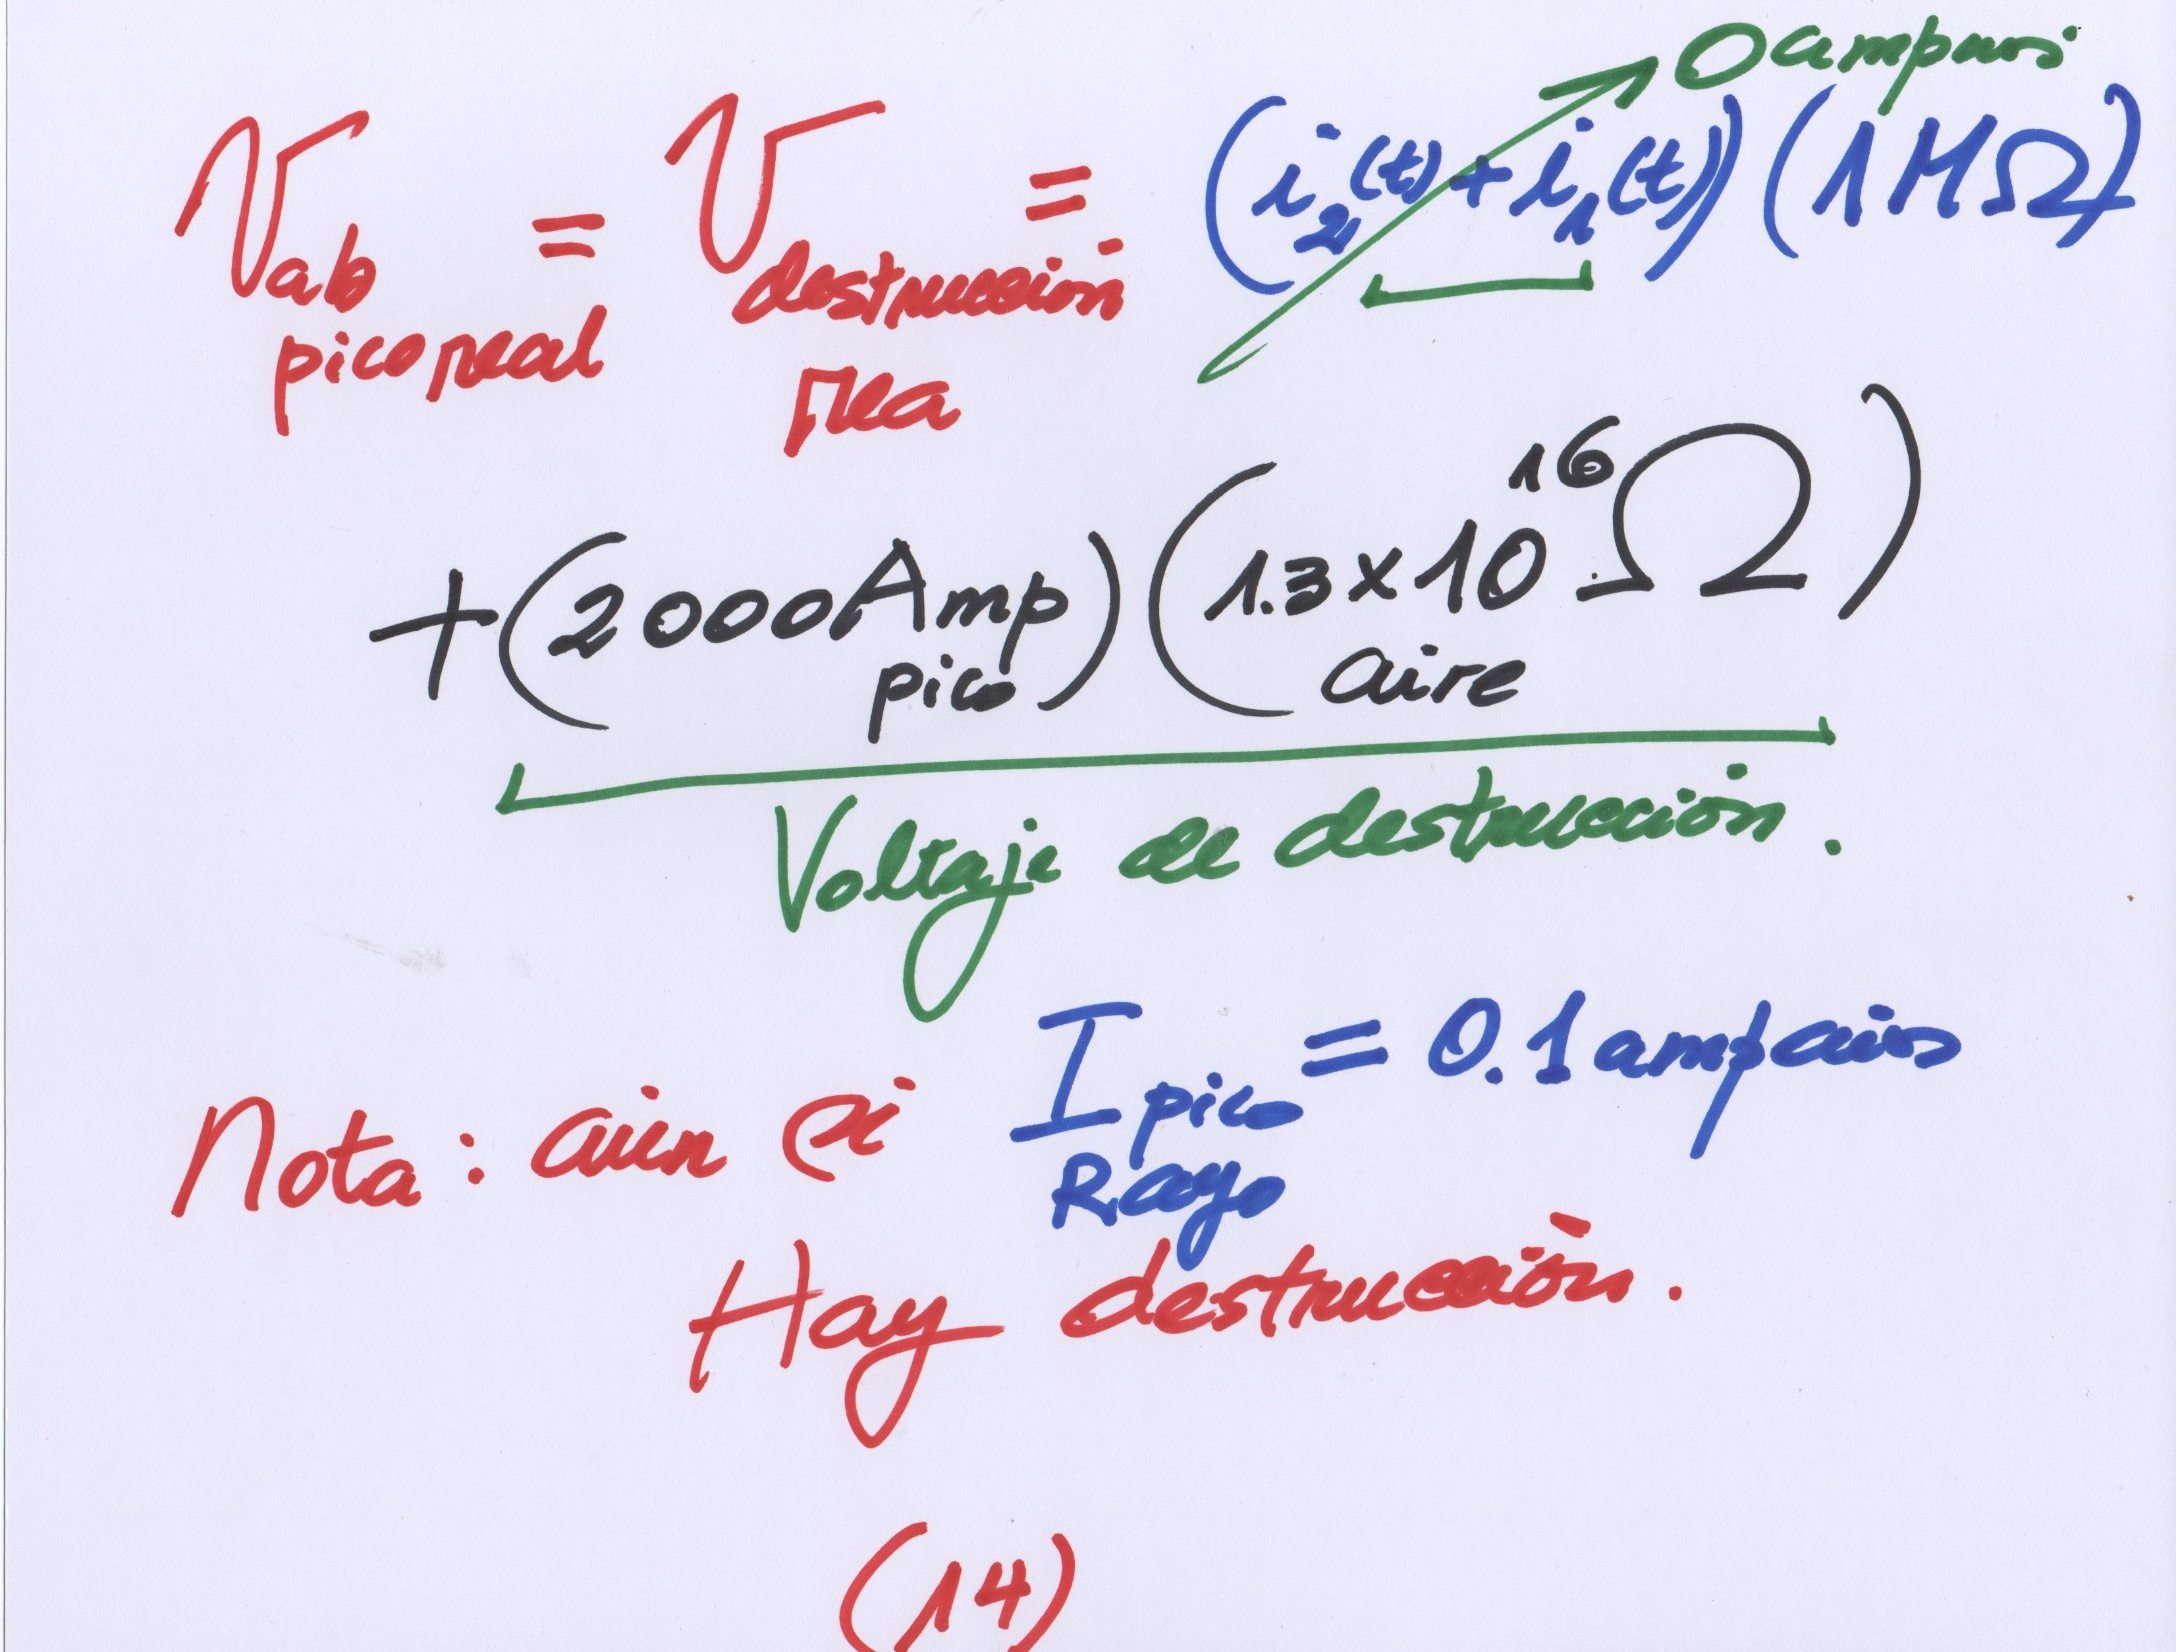 0 amperios
V ab pico real = V destrucción = (i₂(t) + i₁(t)) (1MΩ)
+ (2000 Amp pico) (1.3x10¹⁶ Ω aire)
Voltaje de destrucción.
Nota: aún si I pico Rayo = 0.1 amperios
Hay destrucción.
(14)